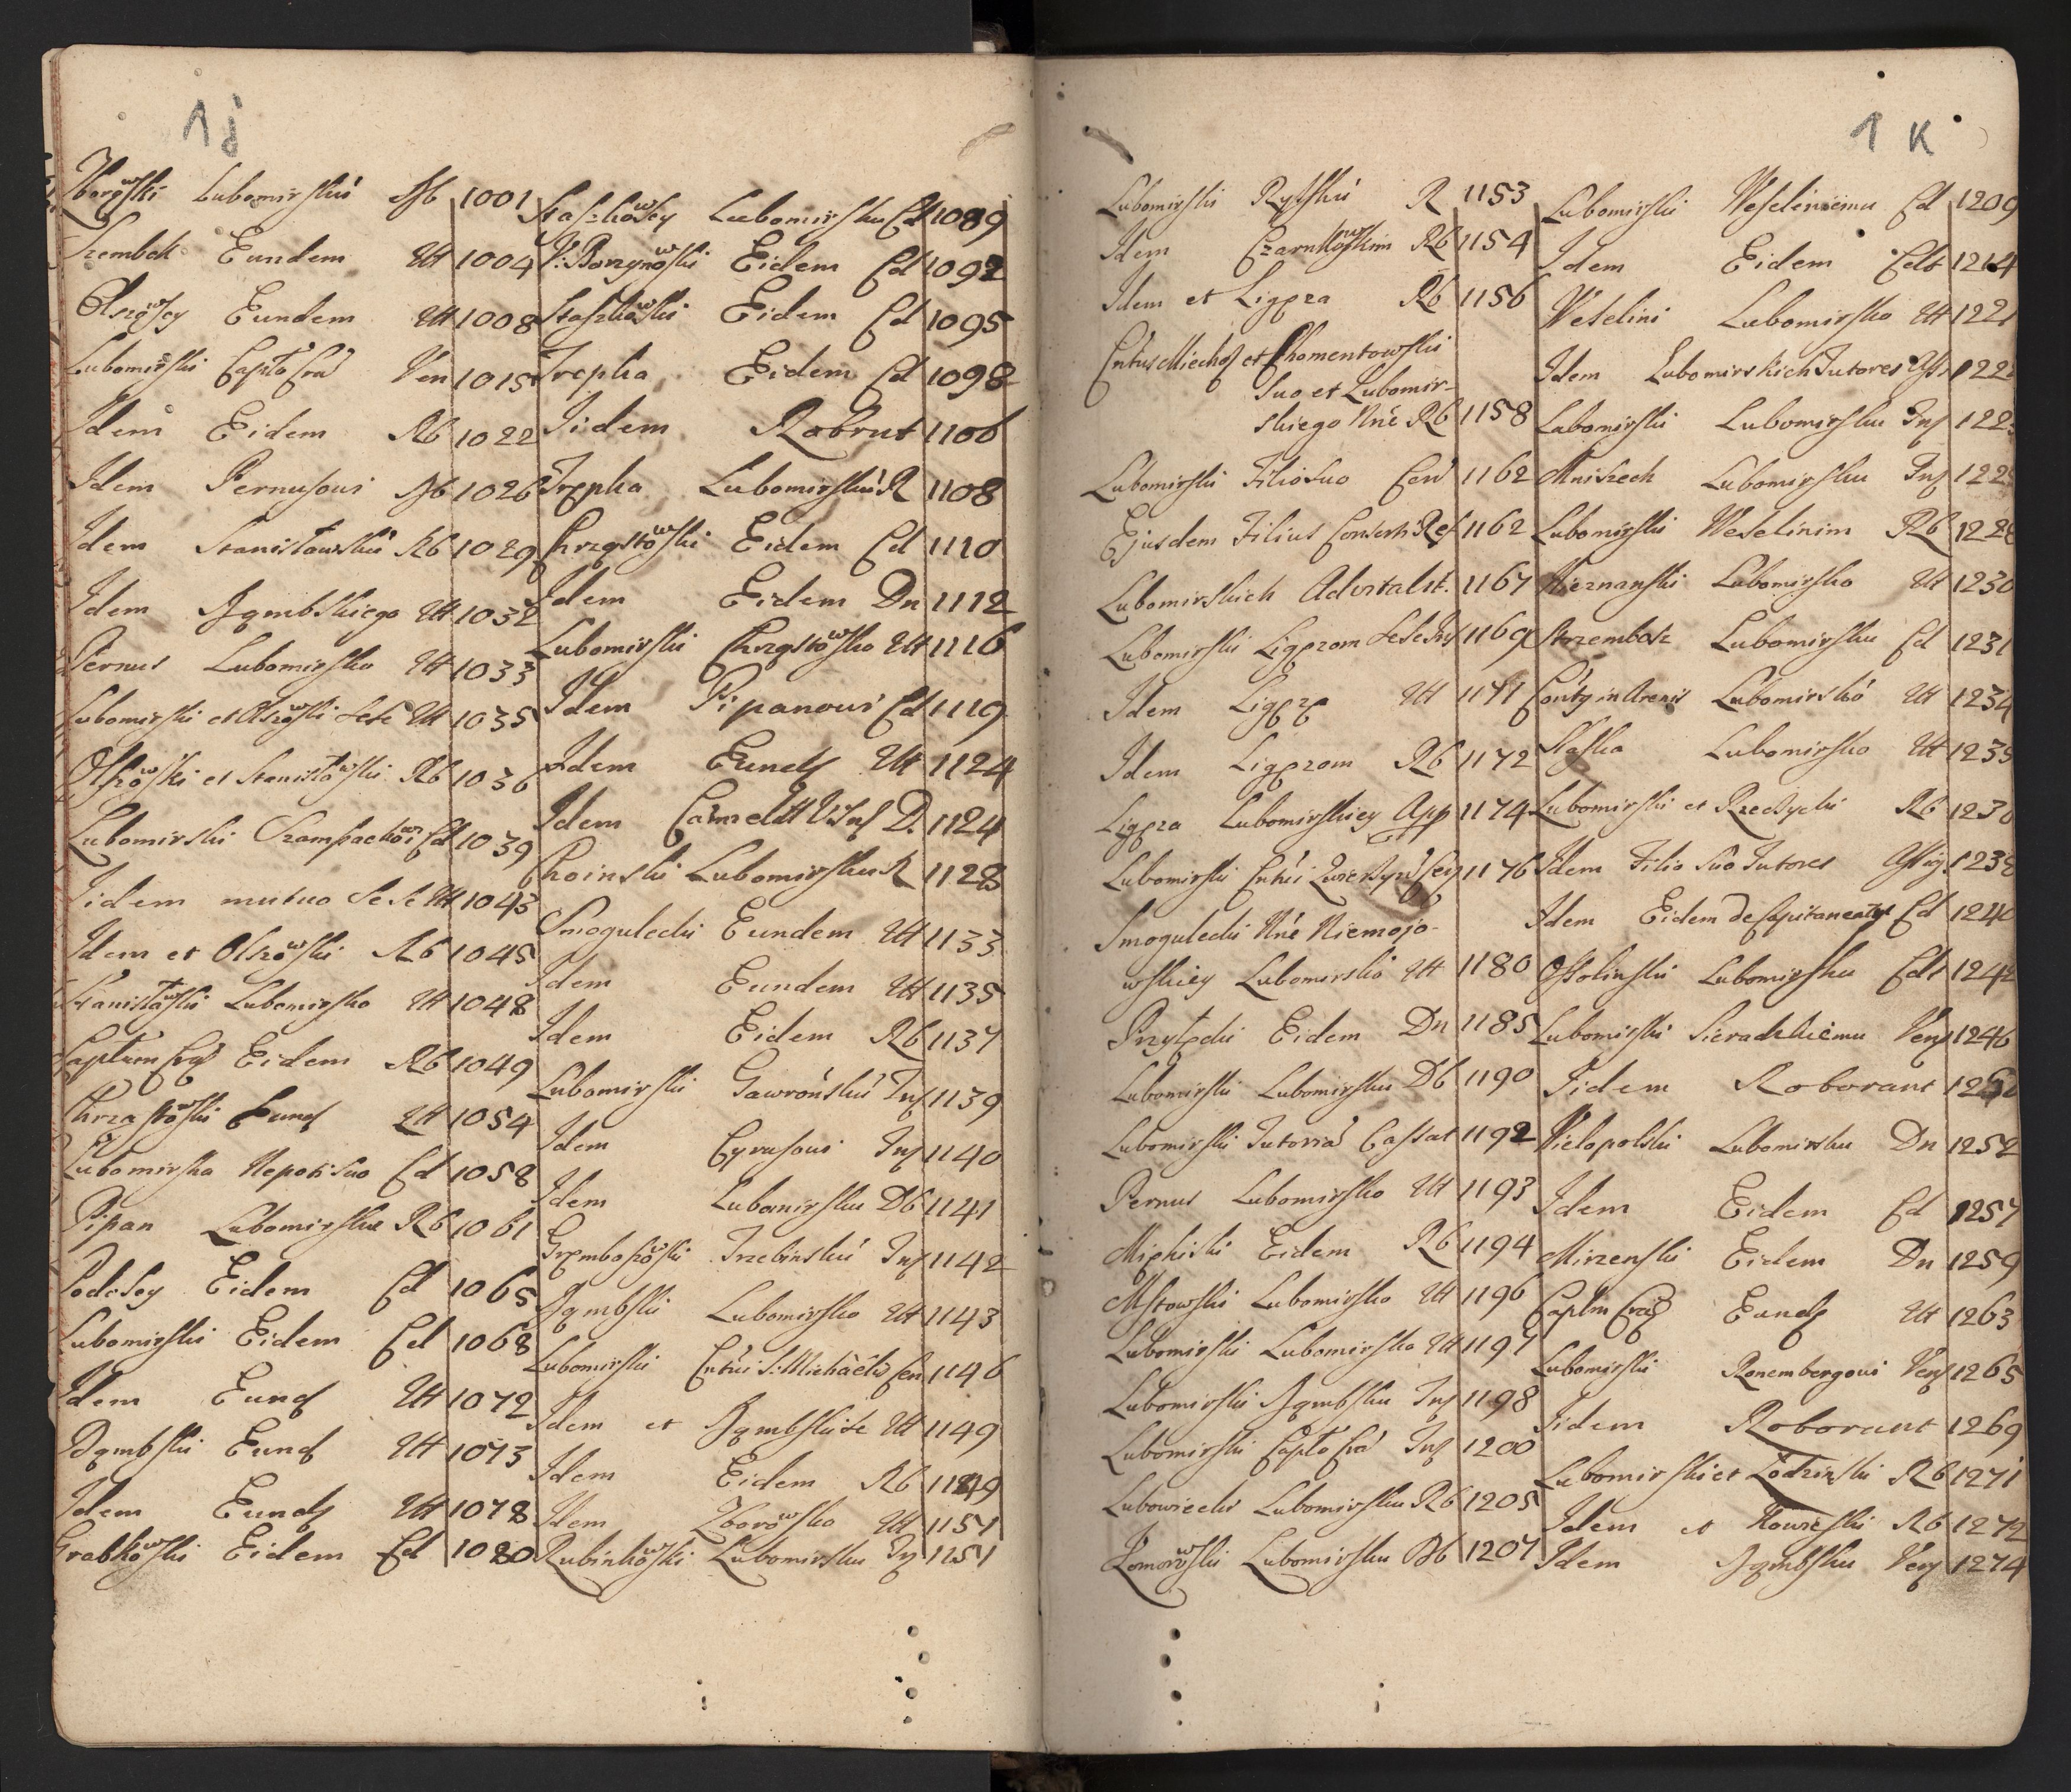 1j
Zborowski Lubomirskiú Ap 1001
Szembek Eundem Utt 1004
Olszowscy Eundem Utt 1008
Lubomirski Capto Cra Ven 1015
Idem Eidem Rb 1022
Idem Pernusowi 1026
Idem Stanisławskiú Rb 1029
Idem Dąmbskiego Utt 1032
Pernus Lubomirsko Utt 1033
Lubomirski et Olszowski Sese Utt 1035
Olszowski et Stanisławski Rb 1036
Lubomirski Cd 1039
Iidem mutuo Sese Utt 1043
Idem et Olszowski Rb 1045
Stanisławski Lubomirsko Utt 1048
Captum Cra Eidem Rb 1049
Chrząstowski Eund Utt 1054
Lubomirska Nepoti Suo Cd 1058
Pipan Lubomirsku Rb 1061
Podoscy Eidem Cd 1065
Lubomirski Eidem Cd 1068
Idem Eund Utt 1072
Dąmbski Eund Utt 1073
Idem Eund Utt 1078
Grabkowski Eidem Cd 1080
Staszkowscy Lubomirsku Cd 1089
Eidem Cd 1092
Staszkowski Eidem Cd 1095
Trepka Eidem Cd 1098
Iidem Robrut 1106
Trepka Lubomirskiú R 1108
Chrząstowski Eidem Cd 1110
Idem Eidem Dn 1112
Lubomirski Chrząstowsko Utt 1116
Idem Pipanowi Cd 1119
Idem Eund Utt 1124
Idem D. 1124
Choinski Lubomirsku R 1128
Smogulecki Eundem Utt 1133
Idem Eundem Utt 1135
Idem Eidem Rb 1137
Lubomirski Gawrońskiú Ins 1139
Idem Cyrusowi Ins 1140
Idem Lubomirsku Db 1141
Grembosowski Trzebinskiú Ins 1142
Dąmbski Lubomirsko Utt 1143
Lubomirski Cntui S. Michaelis Cen 1146
Idem et Dąmbski Se Utt 1149
Idem Eidem Rb 1149
Idem Zborowsko Utt 1151
Rubinkowski Lubomirsku 1151
1 K
Lubomirski Rylskiú R 1153
Idem Czarnkowskim Rb 1154
Idem et Ligęza Rb 1156
Cntus Miecho et Chomentowski
Suo et Lubomir-
skiego Nne Rb 1158
Lubomirski Filio Suo Cen 1162
Ejusdem Filius Consorti Ref 1162
Lubomirskich Advitalit. 1167
Lubomirski Ligęzom Sese Ins 1169
Idem Ligęzę Utt 1171
Idem Ligęzom Rb 1172
Ligęza Lubomirskiey App 1174
Lubomirski Cntui 1176
Smogulecki Nne Niemojo-
wskiey Lubomirsko Utt 1180
Przyłęcki Eidem Dn 1185
Lubomirski Lubomirsku Db 1190
Lubomirski Tutoria Cassat 1192
Pernus Lubomirsko Utt 1193
Eidem Rb 1194
Mstowski Lubomirsko Utt 1196
Lubomirski Lubomirsko Utt 1197
Lubomirski Dąmbsku Ins 1198
Lubomirski Capto Cra Ins 1200
Lubowiecki Lubomirsku Rb 1205
Komorowski Lubomirsku 1207
Lubomirski Weseliniemu Cd 1209
Idem Eidem Cdt 1214
Weselini Lubomirsko Utt
Idem Lubomirskich Tutores
Lubomirski Lubomirsku Ins
Mniszech Lubomirsku Ins
Lubomirski Weselinim Rb 1228
Lubomirsko Utt 1230
Strzembosz Lubomirsku Cd 1231
Lubomirsko Utt 1234
Staska Lubomirsko Utt
Lubomirski et Rzeczycki Rb
Idem Filio Suo Tutores 1238
Idem Eidem de Capitaneatu Cd 1240
Ossolinski Lubomirsku Cdt 1242
Lubomirski Sieradzkiemu Ven 1246
Iidem Roborant
Wielopolski Lubomirsku Dn 1252
Idem Eidem Cd 1257
Mirzenski Eidem Dn 1259
Captm Cra Eund Utt 1263
Lubomirski Ronembergowi Ven 1265
Iidem Roborant 1269
Lubomirski et Łodzinski Rb 1271
Idem et Rb 1272
Idem Dąmbsku Ven 1274